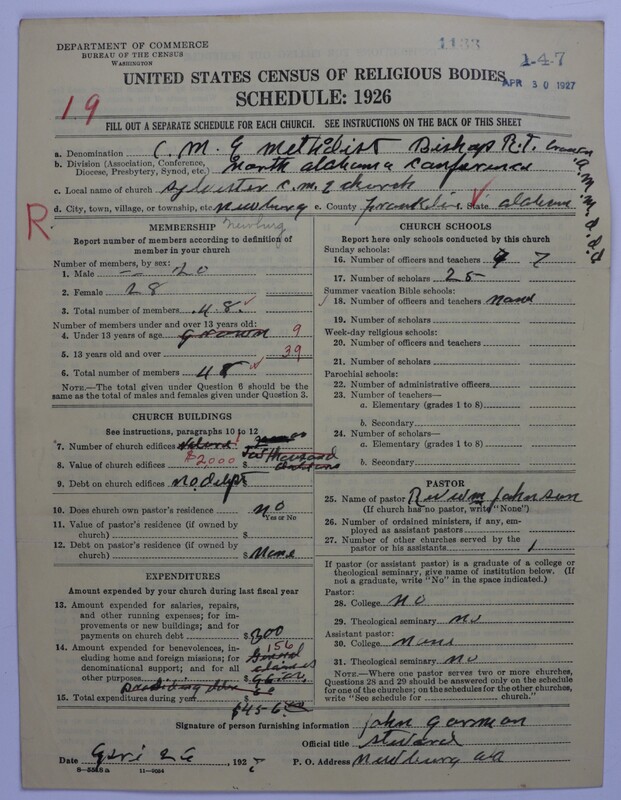 DEPARTMENT OF COMMERCE
BUREAU OF THE CENSUS
WASHINGTON
1133
147
APR 30 1927
UNITED STATES CENSUS OF RELIGIOUS BODIES
SCHEDULE: 1926
19
FILL OUT A SEPARATE SCHEDULE FOR EACH CHURCH. SEE INSTRUCTIONS ON THE BACK OF THIS SHEET
a. Denomination C. M. E Methdist Bishop R. T.
b. Division (Association, Conference, Diocese, Presbytery, Synod, etc.) North alabama Conference
c. Local name of church Sylvester C. M. E church
d. City, town, village, or township, etc. Newburg e. County Franklin f. State alabama
R
MEMBERSHIP Newburg
Report number of members according to definition of
member in your church
Number of members, by sex:
1. Male 20
2. Female 28
3. Total number of members 48
Number of members under and over 13 years old:
4. Under 13 years of age grown 9
5. 13 years old and over 39
6. Total number of members 48
NOTE.—The total given under Question 6 should be the
same as the total of males and females given under Question 3.
CHURCH BUILDINGS
See instructions, paragraphs 10 to 12
7. Number of church edifices 1
8. Value of church edifices $2,000 $ Two thousand
9. Debt on church edifices no dept
10. Does church own pastor's residence? no
Yes or No
11. Value of pastor's residence (if owned by
church) $
12. Debt on pastor's residence (if owned by
church) $ None
EXPENDITURES
Amount expended by your church during last fiscal year
13. Amount expended for salaries, repairs,
and other running expenses; for im-
provements or new buildings; and for
payments on church debt $ 300
14. Amount expended for benevolences, in-
cluding home and foreign missions; for
denominational support; and for all
other purposes 156 General claimes
15. Total expenditures during year
$456.00
CHURCH SCHOOLS
Report here only schools conducted by this church
Sunday schools:
16. Number of officers and teachers 7
17. Number of scholars 25
Summer vacation Bible schools:
18. Number of officers and teachers
19. Number of scholars
Week-day religious schools:
20. Number of officers and teachers
21. Number of scholars
Parochial schools:
22. Number of administrative officers
23. Number of teachers—
a. Elementary (grades 1 to 8)
b. Secondary
24. Number of scholars—
a. Elementary (grades 1 to 8)
b. Secondary
PASTOR
25. Name of pastor Rev Wm Johnson
(If church has no pastor, write "None")
26. Number of ordained ministers, if any, em-
ployed as assistant pastors
27. Number of other churches served by the
pastor or his assistants 1
If pastor (or assistant pastor) is a graduate of a college or
theological seminary, give name of institution below. (If
not a graduate, write "No" in the space indicated.)
Pastor:
28. College no
29. Theological seminary no
Assistant pastor:
30. College None
31. Theological seminary no
NOTE.—Where one pastor serves two or more churches,
Questions 28 and 29 should be answered only on the schedule
for one of the churches; on the schedules for the other churches,
write "See schedule for church."
Signature of person furnishing information John Gorman
Official title Steward
Date 26, 192 P. O. Address Newburg ala
8-5518 a 11-9024